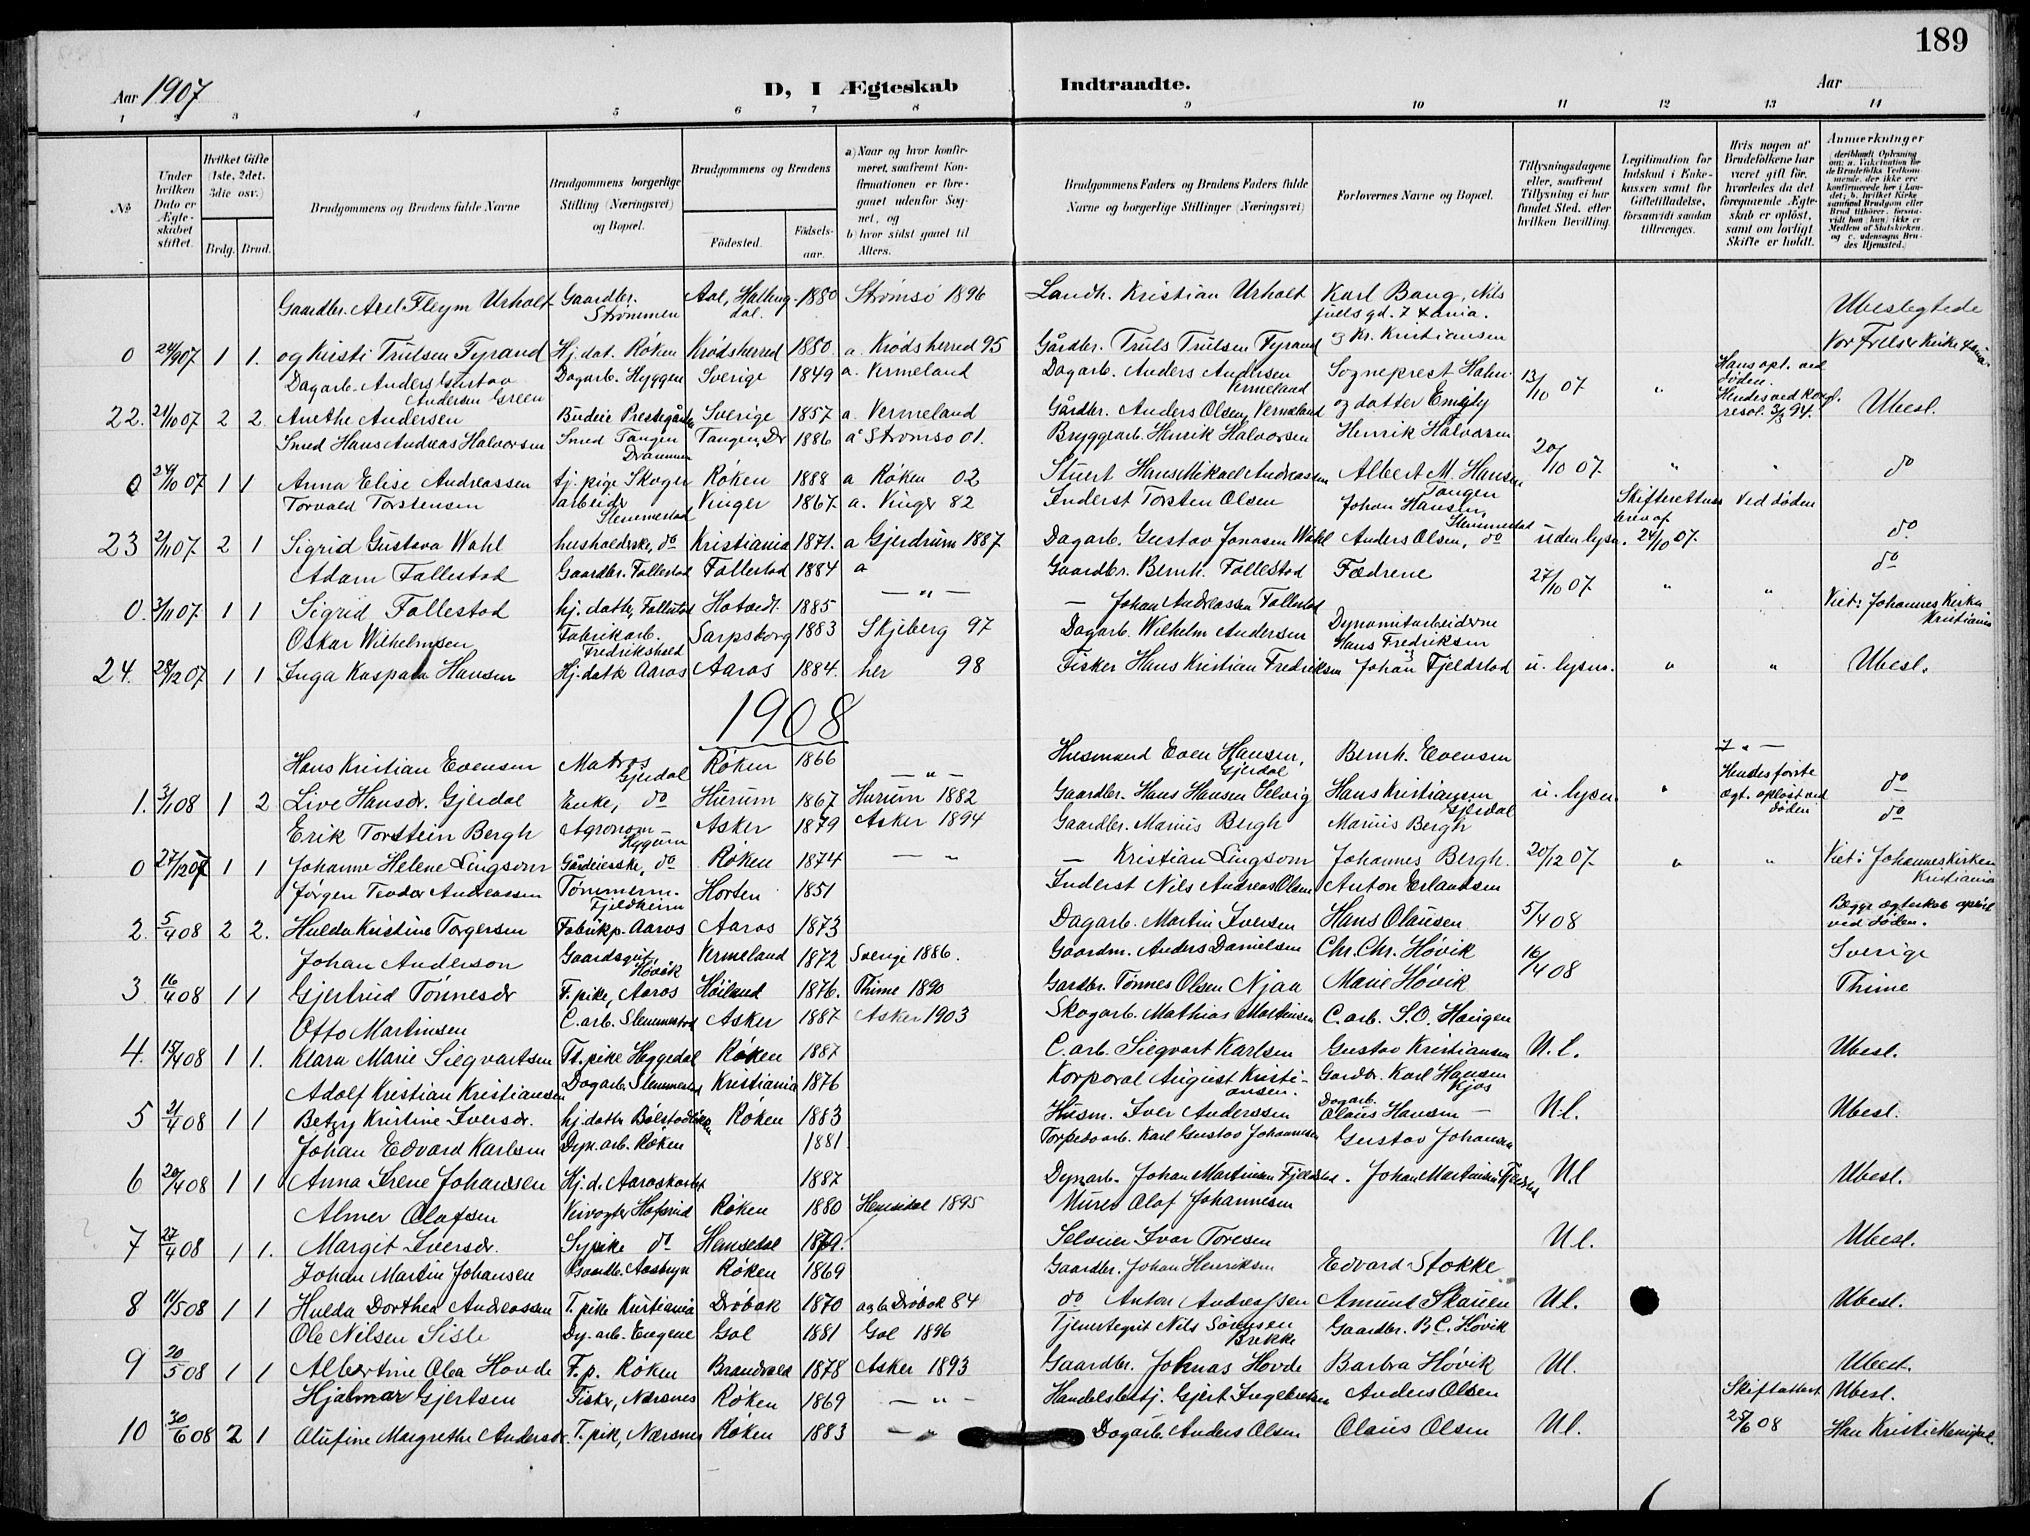 189
Aar 1907
D, I Ægteskab Indtraadte.
Aar
1 2 3 4 5 6 7 8 9 10 11 12 13 14
No
Under hvilken Dato er Ægteskabet stiftet.
Hvilket Gifte (1ste, 2det, 3die osv.)
Brdg. Brud.
Brudgommens og Brudens fulde Navne
Brudgommens borgerlige Stilling (Næringsvei) og Bopæl.
Brudgommens og Brudens
Fødested. Fødselsaar.
a) Naar og hvor konfirmeret, saafremt Konfirmationen er foregaaet udenfor Sognet, og
b) hvor sidst gaaet til Alters.
Brudgommens Faders og Brudens Faders fulde Navne og borgerlige Stillinger (Næringsvei)
Forlovernes Navne og Bopæl.
Tillysningsdagene eller, saafremt Tillysning ei har fundet Sted, efter hvilken Bevilling.
Legitimation for Indskud i Enkekassen samt for Giftetilladelse, forsaavidt saadan tiltrænges.
Hvis nogen af Brudefolkene har været gift før, hvorledes da det foregaaende Ægteskab er opløst, samt om lovligt Skifte er holdt.
Anmærkninger
Gaardbr. Axel Fleym Urholt Gaardbr. Strømmen Aal, Hallingdal. 1880 Strømsø 1896 Landh. Kristian Urholt Karl Bang, Nils juels gd. 7 Xania. Ubeslegtede
0 24/9 07 1 1. og Kirsti Trulsen Fyrand Hj. dat. Røken Krødsherred 1880 a. Krødsherred 95 Gårdbr. Truls Trulsen Fyrand og Kr. Kristiansen Vor Frelsers Kirke Xania.
Dagarb. Anders Gustav Andersen Green Dagarb. Hyggen Sverige 1849 a. Vermeland Dagarb. Anders Andersen Vermeland Sogneprest Hahn 13/10 07 " Hans opl. ved døden.
22. 21/10 07 2 2. Anethe Andersen Budeie Prestegården Sverige 1857 a. Vermeland Gårdbr. Anders Olsen, Vermeland og datter Emely Hendes ved kongl. resol. 3/8 94. Ubesl.
Smed Hans Andreas Halvorsen Smed Tangen Drammen Tangen, Dr 1886 a Strømsø 01. Bryggearb. Henrik Halvorsen Henrik Halvorsen 20/10 07 " " do
0 24/10 07 1 1 Anna Elise Andreassen tj. pige Skoger Røken 1888 a Røken 02 Stuert Hans Mikael Andreassen Albert M. Hansen Tangen
Torvald Torstensen arbeider Slemmestad Vinger 1867. a. Vinger 82 Inderst Torsten Olsen Johan Hansen, Slemmestad Skifterettens brev af Ved døden
23 2/11 07 2 1 Sigrid Gustava Wahl husholderske, do Kristiania 1871. a Gjerdrum 1887 Dagarb. Gustav Jonasen Wahl Anders Olsen, do uden lysn. 24/10 07. do.
Adam Follestad Gaardbr. Follestad Follestad 1884 a Gaardbr. Bernh. Follestad Fædrene 27/10 07 " " do
0. 3/11 07 1 1 Sigrid Follestad hj. datter, Follestad 1885 — " — — Johan Andreassen Follestad Viet i Johannes Kirke Kristiania
Oskar Wilhelmsen Fabrikarb. Fredrikshald Sarpsborg 1883 Skjeberg 97 Dagarb. Wilhelm Andersen Dynamitarbeiderne Hans Fredriksen
24. 28/12 07 1 1 Inga Kaspara Hansen Hj. datter Aaros Aaros 1884. her 98 Fisker Hans Kristian Fredriksen Johan Fjeldstad u. lysn. " " Ubesl.
1908
Hans Kristian Evensen Matros Gjerdal Røken 1866 — " — Husmand Even Hansen, Gjerdal Bernh. Evensen
1. 3/1 08 1 2 Live Hansdr. Gjerdal Enke, do Hurum 1867 Hurum 1882 Gaardbr. Hans Hansen Selvig Hans Kristiansen Gjerdal u. lysn. " Hendes første ægt. opløst ved døden do
Erik Torstein Bergh Agronom Hyggen Asker 1879 Asker 1894 Gaardbr. Marius Bergh Marius Bergh do
0 27/12 07 1 1 Johanne Helene Lingsom Gårdeierske, do Røken 1874 — " — Kristian Lingsom Johannes Bergh. 20/12 07 " " Viet i Johanneskirken Kristiania
Jørgen Teodor Andreassen Tømmerm. Fjeldheim Horten 1851 Inderst Nils Andreas Olsen Anton Erlandsen
2. 5/4 08 2 2. Hulda Kristine Torgersen Fabrikp. Aaros Aaros 1873 Dagarb. Martin Iversen Hans Olausen 5/4 08 Begges ægteskab opløst ved døden.
Johan Anderson Gaardsgut, Høvik Vermeland 1872 Sverige 1886. Gaardm. Anders Danielsen Chr. Chr. Høvik 16/4 08 Sverige
3 16/4 08 1 1 Gjertrud Tønnesdr F. pike, Aaros Høiland 1876. Thime 1890 Gardbr. Tønnes Olsen Njaa Marie Høvik Thime
Otto Martinsen C. arb. Slemmestad Asker 1887 Asker 1903 Skogarb. Mathias Martinsen C. arb. S. O. Haugen
4. 15/4 08 1 1. Klara Marie Siegvartsen Tt. pike Heggedal Røken 1887 C. arb. Siegvart Karlsen Gustav Kristiansen U. l. Ubesl.
Adolf Kristian Kristiansen Dagarb. Slemmestad Kristiania 1876 Korporal August Kristiansen. Gardbr. Karl Hansen Kjos
5 21/4 08 1 1 Betzy Kristine Iversdr. hj. datter Bølstadløkken Røken 1883 Husm. Iver Anderssen Dagarb. Olaus Hansen — U. l. Ubesl.
Johan Edvard Karlsen Dyn. arb. Røken 1881. Torpedoarb. Karl Gustav Johannesen Gustav Johansen
6 20/4 08 1 1 Anna Irene Johansen Hj. d. Aaroskortet 1887 Dynarb. Johan Martinsen Fjeldstad. Johan Martinsen Fjeldstad U.l Ubesl.
Almer Olafsen Veivogter Hofsrud Røken 1880 Hemsedal 1895 Murer Olaf Johannesen
7 27/4 08 1 1. Margit Iversdr. Sypike do Hemsedal 1879. Selveier Ivar Toresen U l. Ubesl.
Johan Martin Johansen Gaardbr. Aasbryn Røken 1869 Gaardbr. Johan Henriksen Edvard Stokke
8 11/5 08 1 1 Hulda Dorthea Andreassen T. pike Kristiania Drøbak 1870 a og b Drøbak 84 do Anton Andreassen Amund Skauen U l. Ubesl.
Ole Nilsen Sisle Dy. arb. Engene Gol 1881 Gol 1896 Tjenestegut Nils Sørensen Brekke Gaardbr. B. C. Høvik
9 20/5 08 1 1 Albertine Olea Hovde F. p. Røken Brandvold 1878 Asker 1893 Gaardbr. Johnas Hovde Barbra Høvik Ul. Ubesl.
Hjalmar Gjertsen Fisker, Nærsnes Røken 1869 — " — Handelsbetj. Gjert Ingebretsen Anders Olsen Skifteattest Ubesl.
10 30/6 08 2 1 Olufine Margrethe Andersdr. T. pik, Nærsnes Røken 1883 — " — Dagarb. Anders Olsen Olaus Olsen Ul. 25/6 08 Han Kristi Menighed.